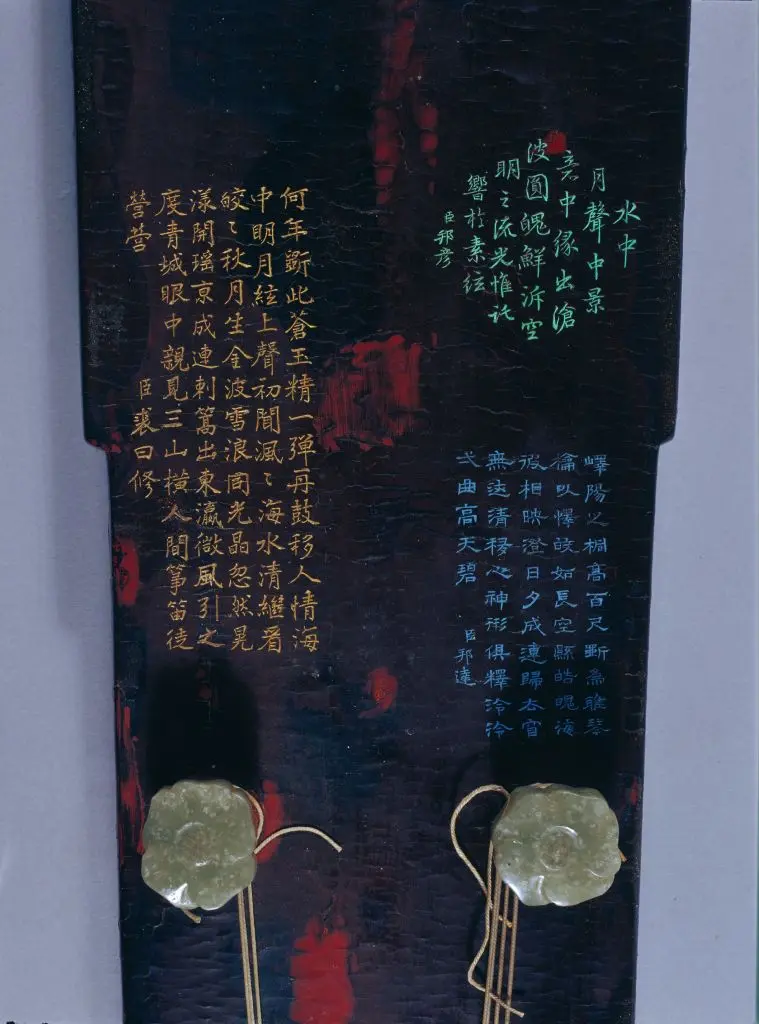 水中
月聲中景
意中緣出滄
波圓魄鮮泝空
明之流光惟託
響於素絃
臣邦彥
嶧陽之桐高百尺斲為雅琴
以懌故如長空縣皓魄海
波相映澄日夕成連歸去窅
無迹清移心神形俱釋泠泠
弌曲高天碧
臣邦達
何年斲此蒼玉精一彈再鼓移人情海
中明月絃上聲初聞渢〻海水清繼看
皎〻秋月生金波雪浪同光晶忽然晃
漾開瑤京成連刺篙出東瀛微風引之
度青城眼中親見三山橫人間箏笛徒
營營
臣裘曰修